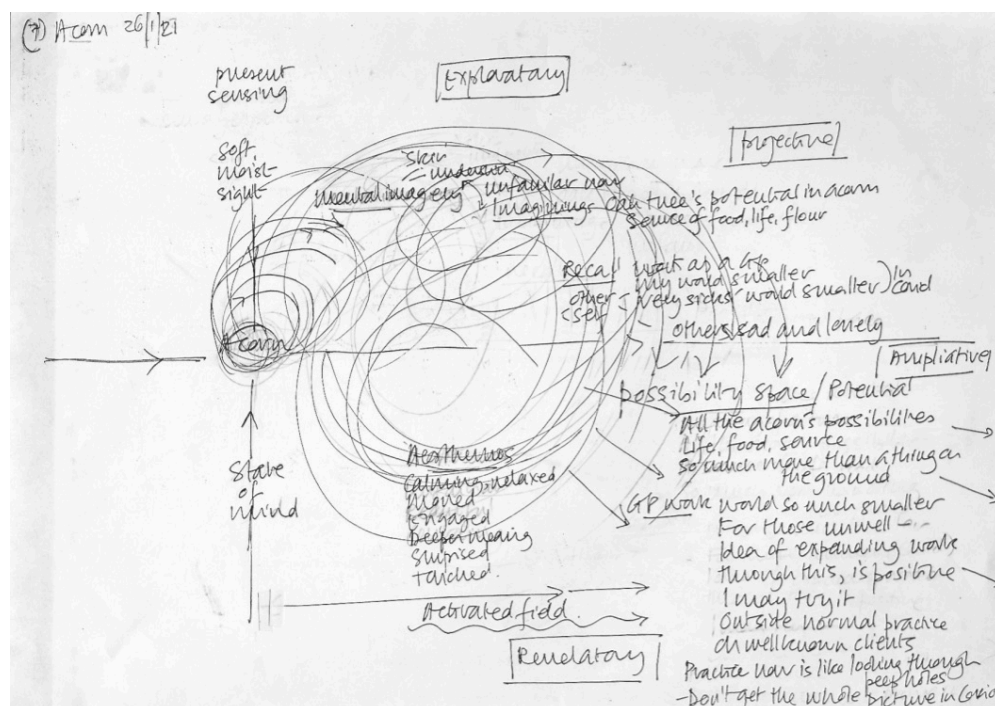 (7) Acorn 26/1/21
present
sensing
Exploratory
Projective
soft
moist
sight
Skin
mental imagery
unfamiliar now
Imaginings Oak tree's potential in acorn
Source of food, life, flour
Recall work as a GP
my world smaller
other very sick world smaller) in
self covid
others sad and lonely
Acorn
Ampliative
possibility space / Potential
All the acorn's possibilities
Life, food, source
So much more than a thing on
the ground
State
of
mind
Aesthemos
calming, relaxed
moved
engaged
Deeper meaning
surprised
touched.
GP work world so much smaller
For those unwell –
Idea of expanding
through this, is positive
I may try it
Outside normal practice
on well known clients
Activated field.
Revelatory
Practice now is like looking through
peep holes
- Don't get the whole picture in Covid